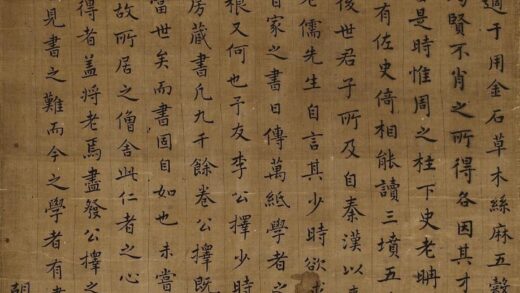 適于用金石草木絲麻五穀
賢不肖之所得各因其才
是時惟周之柱下史老聃
有佐史倚相能讀三墳五
後世君子所及自秦漢以
老儒先生自言其少時欲
百家之書日傳萬紙學者之
根又何也予友李公擇少時
房藏書凡九千餘卷公擇既
當世矣而書固自如也未嘗
故所居之僧舍此仁者之心
得者盖將老焉盡發公擇之
見書之難而今之學者有書